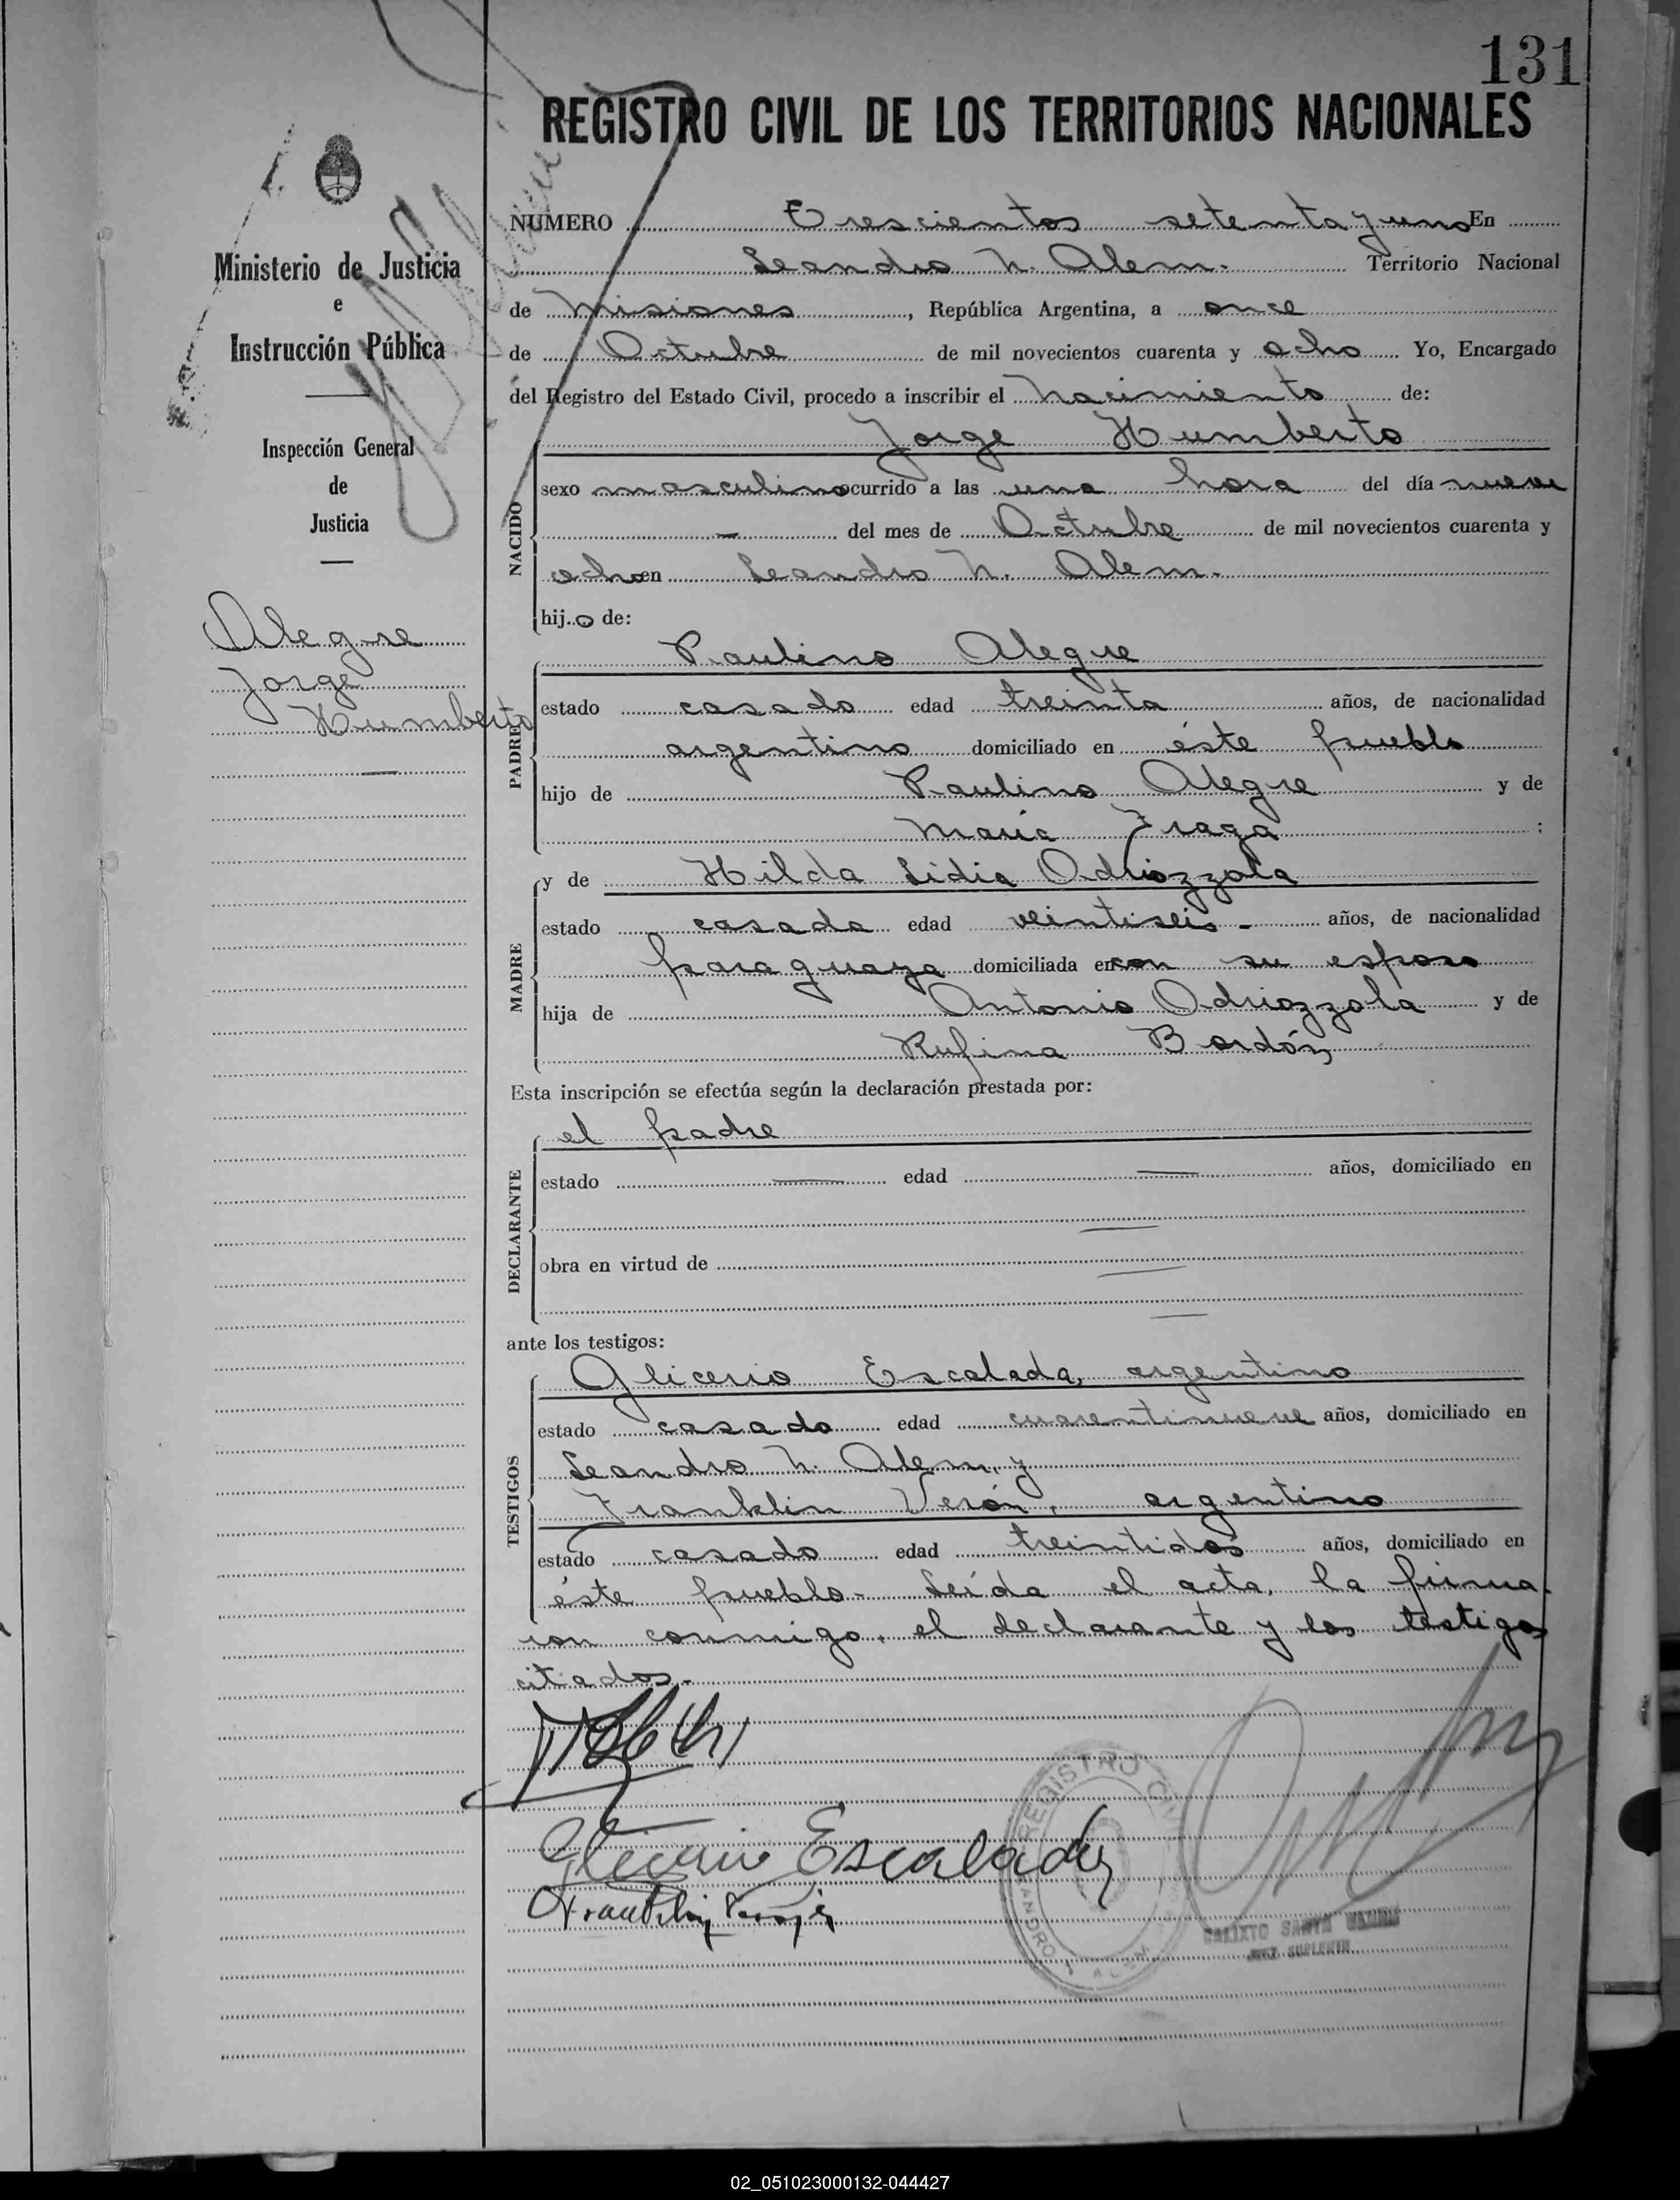 131
REGISTRO CIVIL DE LOS TERRITORIOS NACIONALES
Ministerio de Justicia
e
Instrucción Pública
Inspección General
de
Justicia
Alegre
Jorge
Humberto
NUMERO Trescientos setenta y uno En
Leandro N. Alem. Territorio Nacional
de Misiones, República Argentina, a once
de Octubre de mil novecientos cuarenta y ocho Yo, Encargado
del Registro del Estado Civil, procedo a inscribir el nacimiento de:
NACIDO
Jorge Humberto
sexo masculino ocurrido a las una hora del día nueve
- del mes de Octubre de mil novecientos cuarenta y
ocho en Leandro N. Alem.
hijo de:
PADRE
Paulino Alegre
estado casado edad treinta años, de nacionalidad
argentino domiciliado en éste pueblo
hijo de Paulino Alegre y de
María Fraga ;
MADRE
y de Hilda Lidia Odriozzola
estado casada edad veintiseis - años, de nacionalidad
paraguaya domiciliada en con su esposo
hija de Antonio Odriozzola y de
Rufina Bordón
Esta inscripción se efectúa según la declaración prestada por:
DECLARANTE
el padre
estado — edad — años, domiciliado en
—
obra en virtud de —
—
ante los testigos:
TESTIGOS
Glicerio Escalada, argentino
estado casado edad cuarentinueve años, domiciliado en
Leandro N. Alem, y
Franklin Verón, argentino
estado casado edad treintidos años, domiciliado en
éste pueblo - Leída el acta, la firma
ron conmigo, el declarante y los testigos
citados.
Glicerio Escalada
REGISTRO CIVIL
CALIXTO SANTA
JUEZ SUPLENTE
02_051023000132-044427